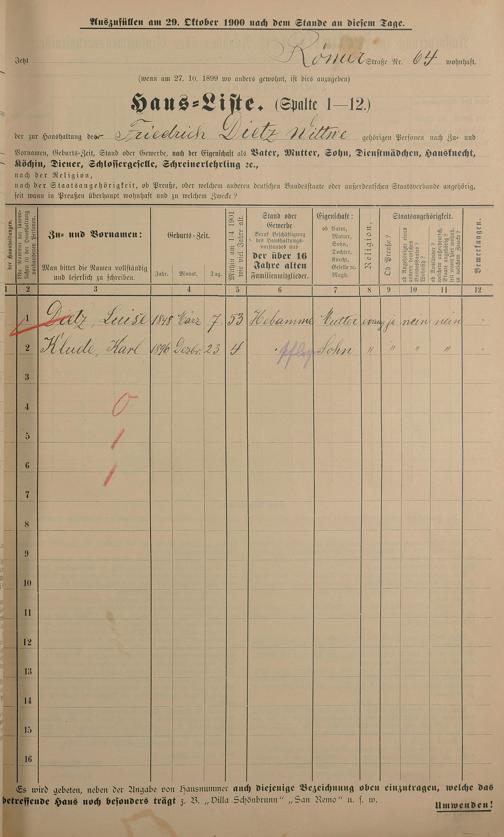 Auszufüllen am 29. Oktober 1900 nach dem Stande an diesem Tage.
Jetzt Römer Straße Nr. 64 wohnhaft.
(wenn am 27. 10. 1899 wo anders gewohnt, ist dies anzugeben)
Haus-Liste. (Spalte 1—12.)
der zur Haushaltung der Friedrich Dietz Wittwe gehörigen Personen nach Zu- und
Vornamen, Geburts-Zeit, Stand oder Gewerbe, nach der Eigenschaft als Vater, Mutter, Sohn, Dienstmädchen, Hausknecht,
Köchin, Diener, Schlossergeselle, Schreinerlehrling ꝛc.,
nach der Religion,
nach der Staatsangehörigkeit, ob Preuße, oder welchem anderen deutschen Bundesstaate oder außerdeutschen Staatsverbande angehörig,
seit wann in Preußen überhaupt wohnhaft und zu welchem Zwecke?
Zu- und Vornamen:
Man bittet die Namen vollständig
und leserlich zu schreiben.
Geburts-Zeit.
Jahr. Monat. Tag.
Mithin am 1/4 1901
wie viel Jahre alt.
Stand oder
Gewerbe
Beruf Beschäftigung
des Haushaltungs-
vorstandes und
der über 16
Jahre alten
Familienmitglieder.
Eigenschaft:
ob Vater,
Mutter,
Sohn,
Tochter,
Knecht,
Geselle ꝛc.
Magd.
Religion.
Staatsangehörigkeit.
Ob Preuße?
Bemerkungen.
1 2 3 4 5 6 7 8 9 10 11 12
1 Dietz, Luise 1848 März 7 53 Hebamme Mutter evang ja nein nein
2 Klude, Karl 1896 Dezbr. 23 4 Sohn " " " "
3
4 0
5 1
6 1
7
8
9
10
11
12
13
14
15
16
Es wird gebeten, neben der Angabe von Hausnummer auch diejenige Bezeichnung oben einzutragen, welche das
betreffende Haus noch besonders trägt z. B. „Villa Schönbrunn" „San Remo" u. s. w.
Umwenden!